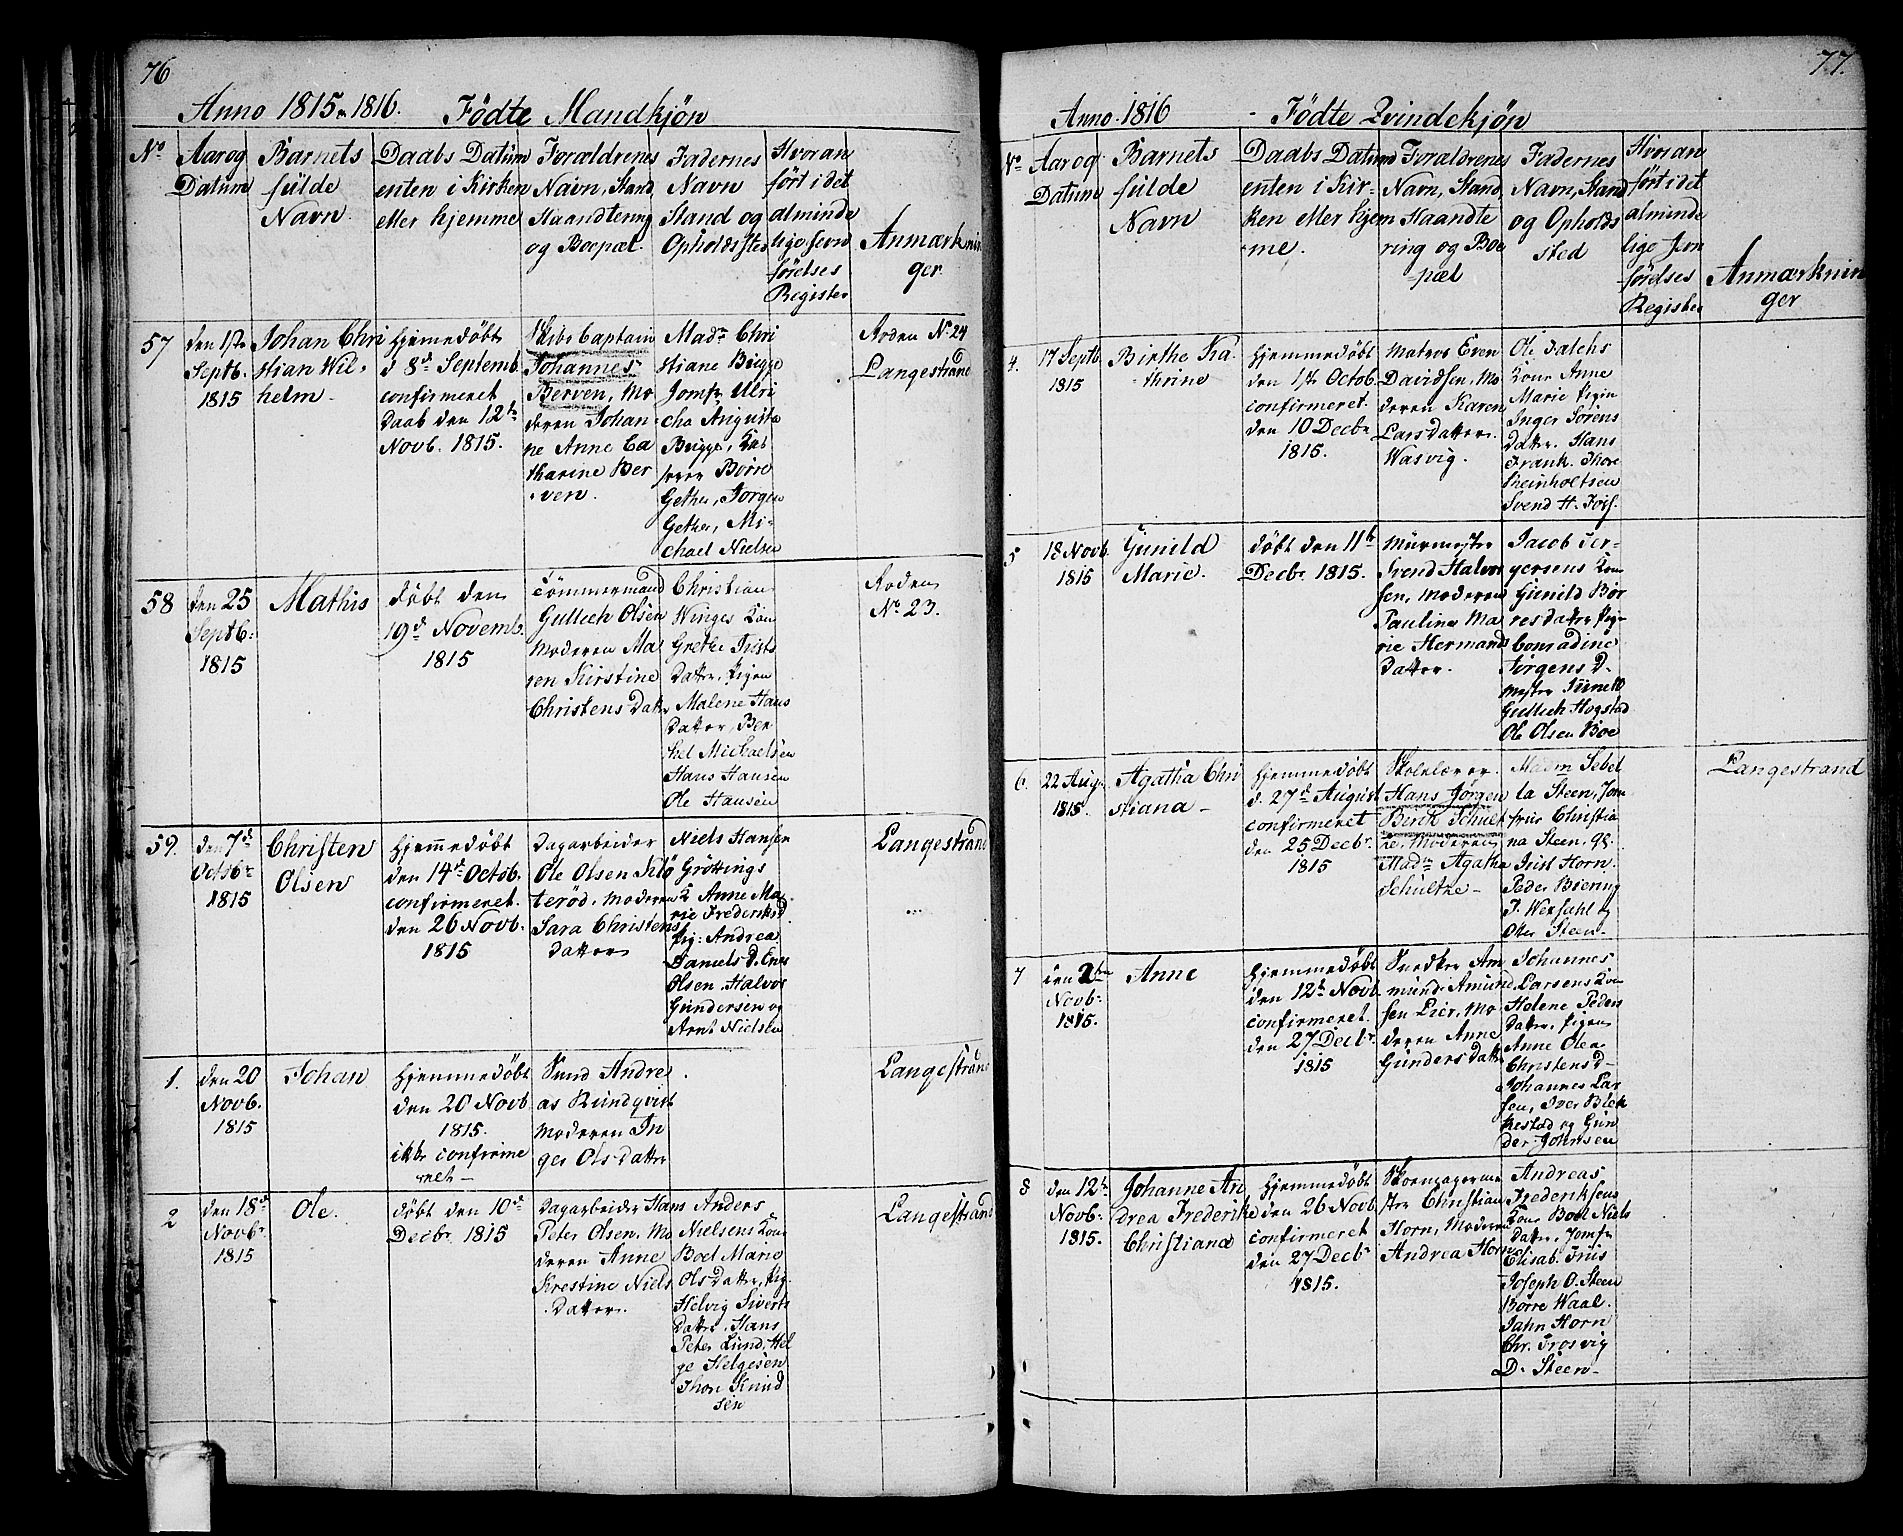 76
Anno 1815 & 1816. Fødte Mandkjøn
No
Aar og
Datum
Barnets
fulde
Navn.
Daabs Datum
enten i Kirken
eller hjemme
Forældrenes
Navn, Stand
Haandtering
og Boepæl.
Fadernes
Navn
Stand og
Opholdsted
Hvor an
ført i det
alminde
lige Jevn
førelses
Register
Anmærknin
ger
57
den 1ste
Septb.
1815
Johan Chri
stian Wil-
helm.
Hjemmedøbt
d 8de Septemb.
confirmeret
Daab den 12te
Novb. 1815.
Skibs Captain
Johannes
Berven, Mo
deren Johan
ne Anne Ca
tharine Ber
ven.
Madm Chri
stiane Bugge
Jomfr. Ulri
cha Augusta
Bugge,
Børre
Gether, Jørgen
Gether, Mi-
chael Nielsen
Roden No. 24
Langestrand
58
den 25
Septb.
1815
Mathis
døbt den
19de Novemb.
1815
Tømmermand
Gullech Olsen
Moderen Ma
ren Kirstine
Christens Datter
Christian
Winges Kone
Grethe Trists
Datter, Pigen
Malene Hans
Datter, Ber
thel Michaelsen
Hans Hansen
Ole Hansen
Roden
No. 23.
59.
den 7de
Octobr
1815
Christen
Olsen
Hjemmedøbt
den 14de Octob.
confirmeret.
den 26 Novb.
1815
Dagarbeider
Ole Olsen Klø
terød, Moderen
Sara Christens
Datter
Niels Hansen
Grøttings
K Anne Ma
rie Frederiksd
Pig: Andrea
Daniels D. Enes
Olsen, Halvor
Gundersen og
Arnt Nielsen
Langestrand
1.
den 20
Novb.
1815
Johan
Hjemmedøbt
den 20 Novb
1815.
ikke confirme
ret -
Svend Andre
as Rundqvist
Moderen In
ger Ols datter
Langestrand
2
den 18de
Novbr
1815
Ole.
døbt den 10de
Decbr. 1815
Dagarbeider Hans
Peter Olsen, Mo
deren Anne
Krestine Niels
Datter.
Anders
Nielsens Kone
Boel Marie
Ols Datter, Pig.
Helvig Siverts
Datter, Hans
Peter Lund, Hel
ge Helgesen
Thor Knud
sen
Langestrand
77.
Anno 1816 - Fødte Qvindekjøn
No
Aar og
Datum
Barnets
fulde
Navn
Daabs Datum
enten i Kir-
ken eller hjem
me.
Forældrenes
Navn, Stand,
Haandte
ring og Boe
pæl
Fadernes
Navn, Stand
og Opholds
sted
Hvor an
ført i det
alminde
lige Jevn
førelses
Register
Anmærknin
ger
4.
17 Septb
1815
Birthe Ka-
thrine
Hjemmedøbt
den 1ste Octob.
confirmeret.
den 10 Decbr
1815.
Matros Even
Davidsen, Mo
deren Karen
Larsdatter.
Wasvig.
Ole Falchs
Kone Anne
Marie Pigen
Inger Sørens
Datter, Hans
Frank, Thore
Steinholtsen
Svend H. Foss.
5
18 Novb.
1815
Gunild
Marie.
døbt den 11te
Decbr 1815.
Muurmester
Svend Halvor
sen, Moderen
Pauline Ma
rie Hermands
Datter.
Jacob Jør-
gensens Kone
Gunild Bør
resdatter Pige
Conradine
Jørgens D.
Gullech Hogstad
Ole Olsen Boe
6.
22 Aug.
1815.
Agatha Chri
stiana -
Hjemmedøbt
d. 27de August
confirmeret
den 25 Decbr.
1815
Skolelærer
Hans Jørgen
Berth Schult
ze, Moderen
Madm Agatha
Schultze -
Madm Sebel
la Steen, Jom
frue Christia
na Steen, Hr.
Trist Horn.
Peder Biering
J. Wexsahl &
Otter Steen -
Langestrand
7
den 2den
Novbr
1815.
Anne
Hjemmedøbt
den 12te Novb.
confirmeret.
den 27 Decbr.
1815
Snedker Am
mund Amund
sen Lier, Mo
deren Anne
Gunders datter
Johannes
Larsens Kone
Helene Peders
Datter, Pigen
Anne Olea
Christensd-
Johannes Lar
sen, Iver Blek
kestad og Gun
der Johnsen
8
den 12te
Novbr.
1815.
Johanne An
drea Frederik
Christiana
Hjemmedøbt
den 26 Novb
confirmeret
den 27 Decbr
1815.
Skoemagerme
ster Christian
Horn, Moderen
Andrea Horn
Andreas
Frederiksens
Kone Boel Niels
Datter, Jomfr
Elisab. Friis
Joseph O. Steen
Børre Waal.
Jahn Horn
Chr. Trosvig
D. Steen -